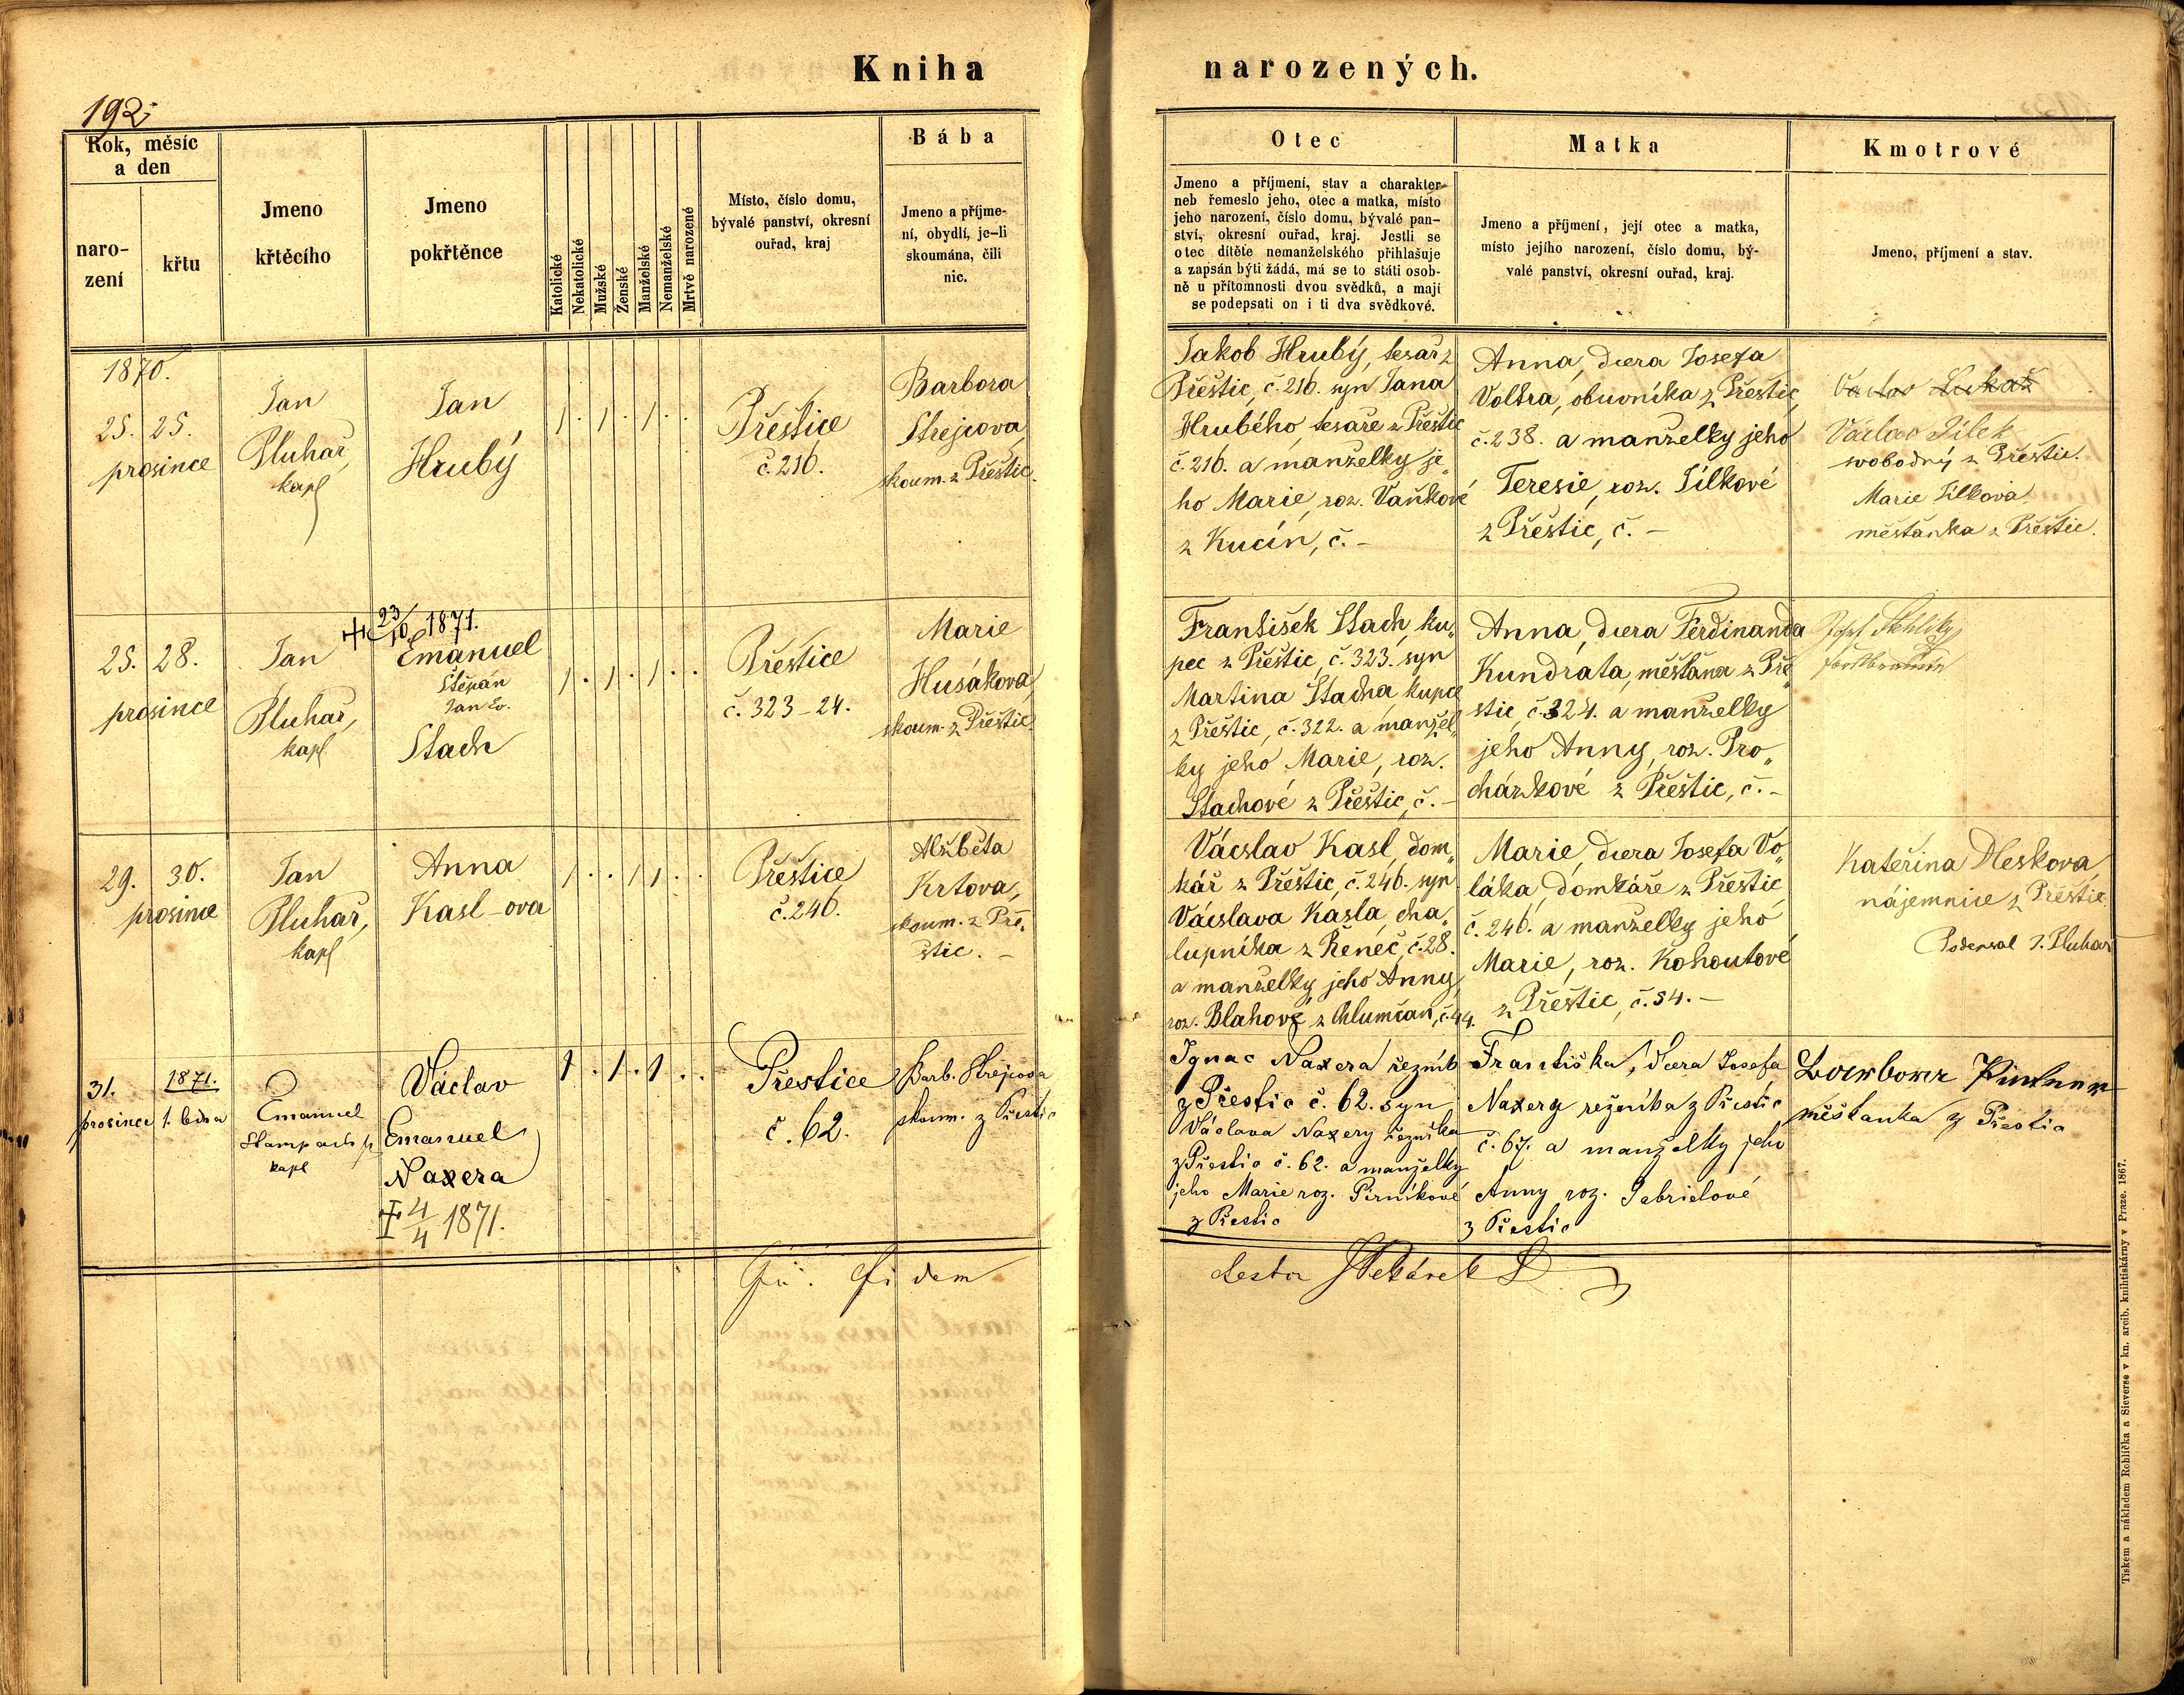 Kniha narozených.
192
Rok, měsíc a den
naro-
zení
křtu
Jmeno
křtěcího
Jmeno
pokřtěnce
Katolické
Nekatolické
Mužské
Ženské
Manželské
Nemanželské
Mrtvě narozené
Místo, číslo domu,
bývalé panství, okresní
ouřad, kraj
Bába
Jmeno a příjme-
ní, obydlí, je-li
skoumána, čili
nic.
Otec
Jmeno a příjmení, stav a charakter
neb řemeslo jeho, otec a matka, místo
jeho narození, číslo domu, bývalé pan-
ství, okresní ouřad, kraj. Jestli se
otec dítěte nemanželského přihlašuje
a zapsán býti žádá, má se to státi osob-
ně u přítomnosti dvou svědků, a mají
se podepsati on i ti dva svědkové.
Matka
Jmeno a příjmení, její otec a matka,
místo jejího narození, číslo domu, bý-
valé panství, okresní ouřad, kraj.
Kmotrové
Jmeno, příjmení a stav.
1870.
25. 25.
prosince
Jan
Pluhař,
kapl
Jan
Hrubý
Přeštice
č. 216.
Barbora
Strejcova,
skoum. z Přeštic.
Jakob Hrubý, tesař z
Přeštic, č. 216. syn Jana
Hrubého, tesaře z Přeštic
č. 216. a manželky je
ho Marie, roz. Vaňkové
z Kucín, č. –
Anna, dcera Josefa
Voltra, obuvníka z Přeštic,
č. 238. a manželky jeho
Teresie, roz. Jílkové
z Přeštic, č. –
Václav Lukaš
Václav Jílek
svobodný z Přeštic.
Marie Jílkova
měštanka z Přeštic.
25. 28.
prosince
Jan
Pluhař,
kapl
† 23/10 1871.
Emanuel
Štěpán
Jan Ev.
Stach
Přeštice
č. 323–24.
Marie
Husákova,
skoum. z Přeštic
František Stach, ku„
pec z Přeštic, č. 323. syn
Martina Stacha, kupce
z Přeštic, č. 322. a manžel„
ky jeho Marie, roz.
Stachové z Přeštic, č. –
Anna, dcera Ferdinanda
Kundráta, měšťana z Pře„
štic, č. 324. a manželky
jeho Anny, roz. Pro„
cházkové z Přeštic, č. –
29. 30.
prosince
Jan
Pluhař,
kapl
Anna
Kasl–ova
Přeštice
č. 246.
Alžběta
Krtova,
skoum. z Pře„
štic. –
Václav Kasl, dom„
kář z Přeštic, č. 246. syn
Václava Kasla, cha„
lupníka z Řeneč, č. 28.
a manželky jeho Anny,
roz. Blahové z Chlumčan, č. 44.
Marie, dcera Josefa Vo„
láka, domkáře z Přeštic,
č. 246. a manželky jeho
Marie, roz. Kohoutové
z Přeštic, č. 54. –
Kateřina Pleskova,
nájemnice z Přeštic.
Podepsal J. Pluhař
31. 1871.
prosince 1. ledna
Emanuel
kapl
Václav
Emanuel
Naxera
† 4/4 1871.
Přestice
č. 62.
Barb. Strejcova
skoum. z Přestic
Ignac Naxera řezník
z Přestic č. 62. syn
Václava Naxery řezníka
z Přestic č. 62. a manželky
jeho Marie roz. Pirníkové
z Přestic
Františka, dcera Josefa
Naxery řezníka z Přestic
č. 67. a manželky jeho
Anny roz. Gabrielové
z Přestic
měštanka z Přestic
fidem
Tiskem a nákladem Rohlíčka a Sieverse v kn. arcib. knihtiskárny v Praze. 1867.